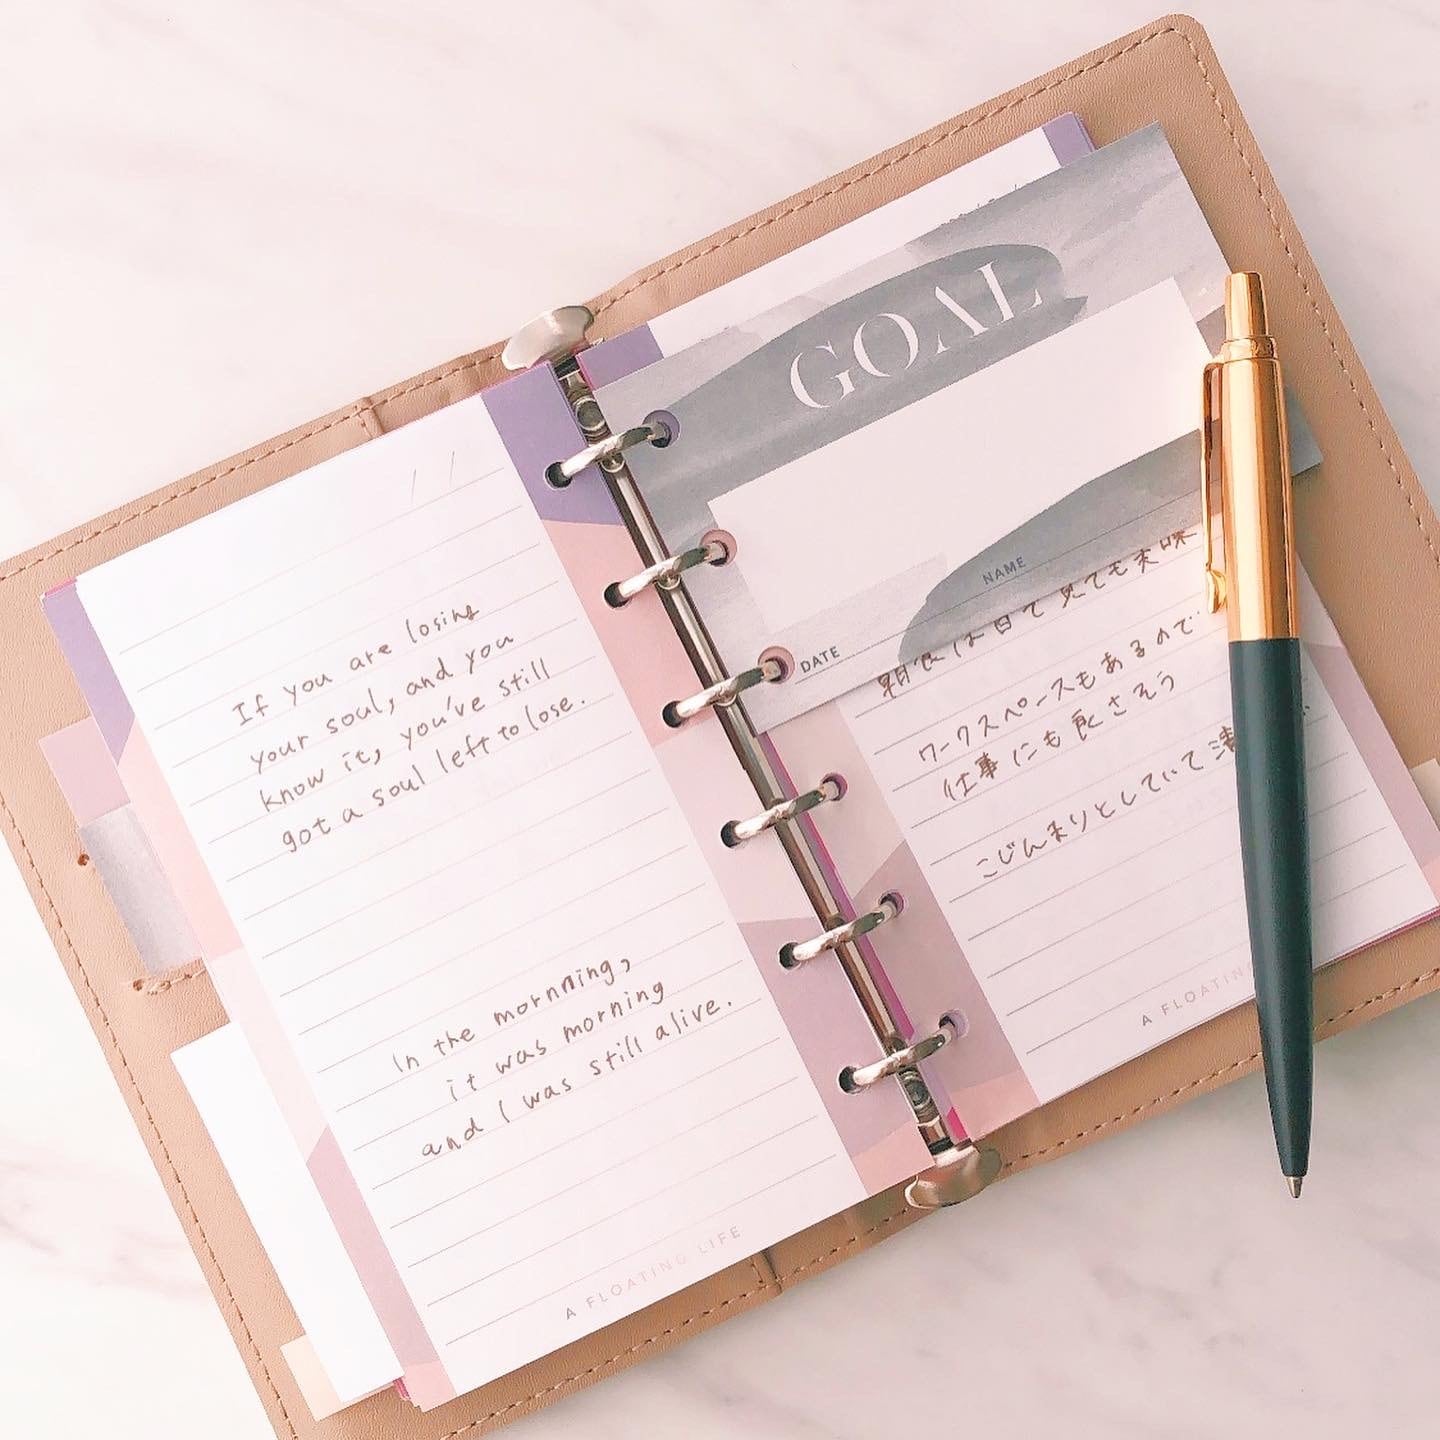 If you are losing
your soul, and you
know it, you've still
got a soul left to lose.
In the mornning,
it was morning
and I was still alive.
A FLOATING LIFE
GOAL
NAME
DATE
朝食は目で見ても美味
ワークスペースもあるので
仕事にも良さそう
こじんまりとしていて清
A FLOATING